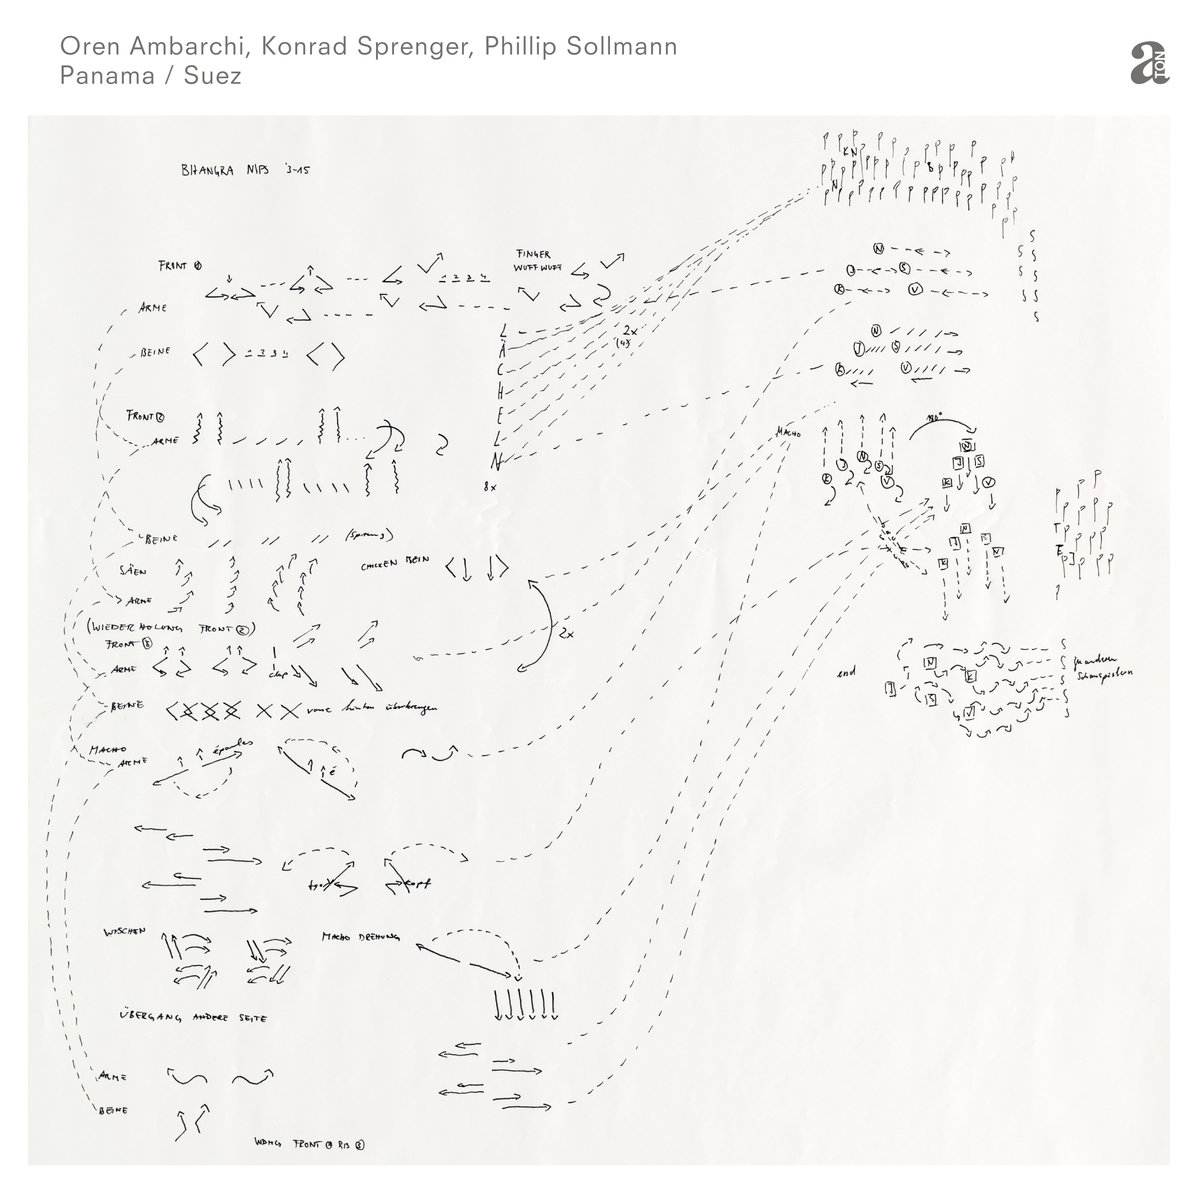 Oren Ambarchi, Konrad Sprenger, Phillip Sollmann
Panama / Suez
a TON
BHANGRA NIPS '3-15
FRONT ①
FINGER
WUFF WUFF
1 2 3 4
ARME
BEINE
1 2 3 4
LÄCHELN
8x
2x
(4)
FRONT ②
ARME
BEINE
(Sprung)
SÄEN
ARME
CHICKEN BEIN
2x
(WIEDERHOLUNG FRONT ②)
FRONT ③
ARME
clap
BEINE
vorne hinten überkreuzen
MACHO
ARME
épaules
é
kopf
WISCHEN
MACHO DREHUNG
ÜBERGANG ANDERE SEITE
ARME
BEINE
WDHG FRONT ① BIS ③
KN
B
N
N
J S
K V
N
J S
K V
MACHO
180°
K J N S V
N
J S
K V
N
J S
K V
end
N
K
J
S
V
zu anderen
Schauspielern